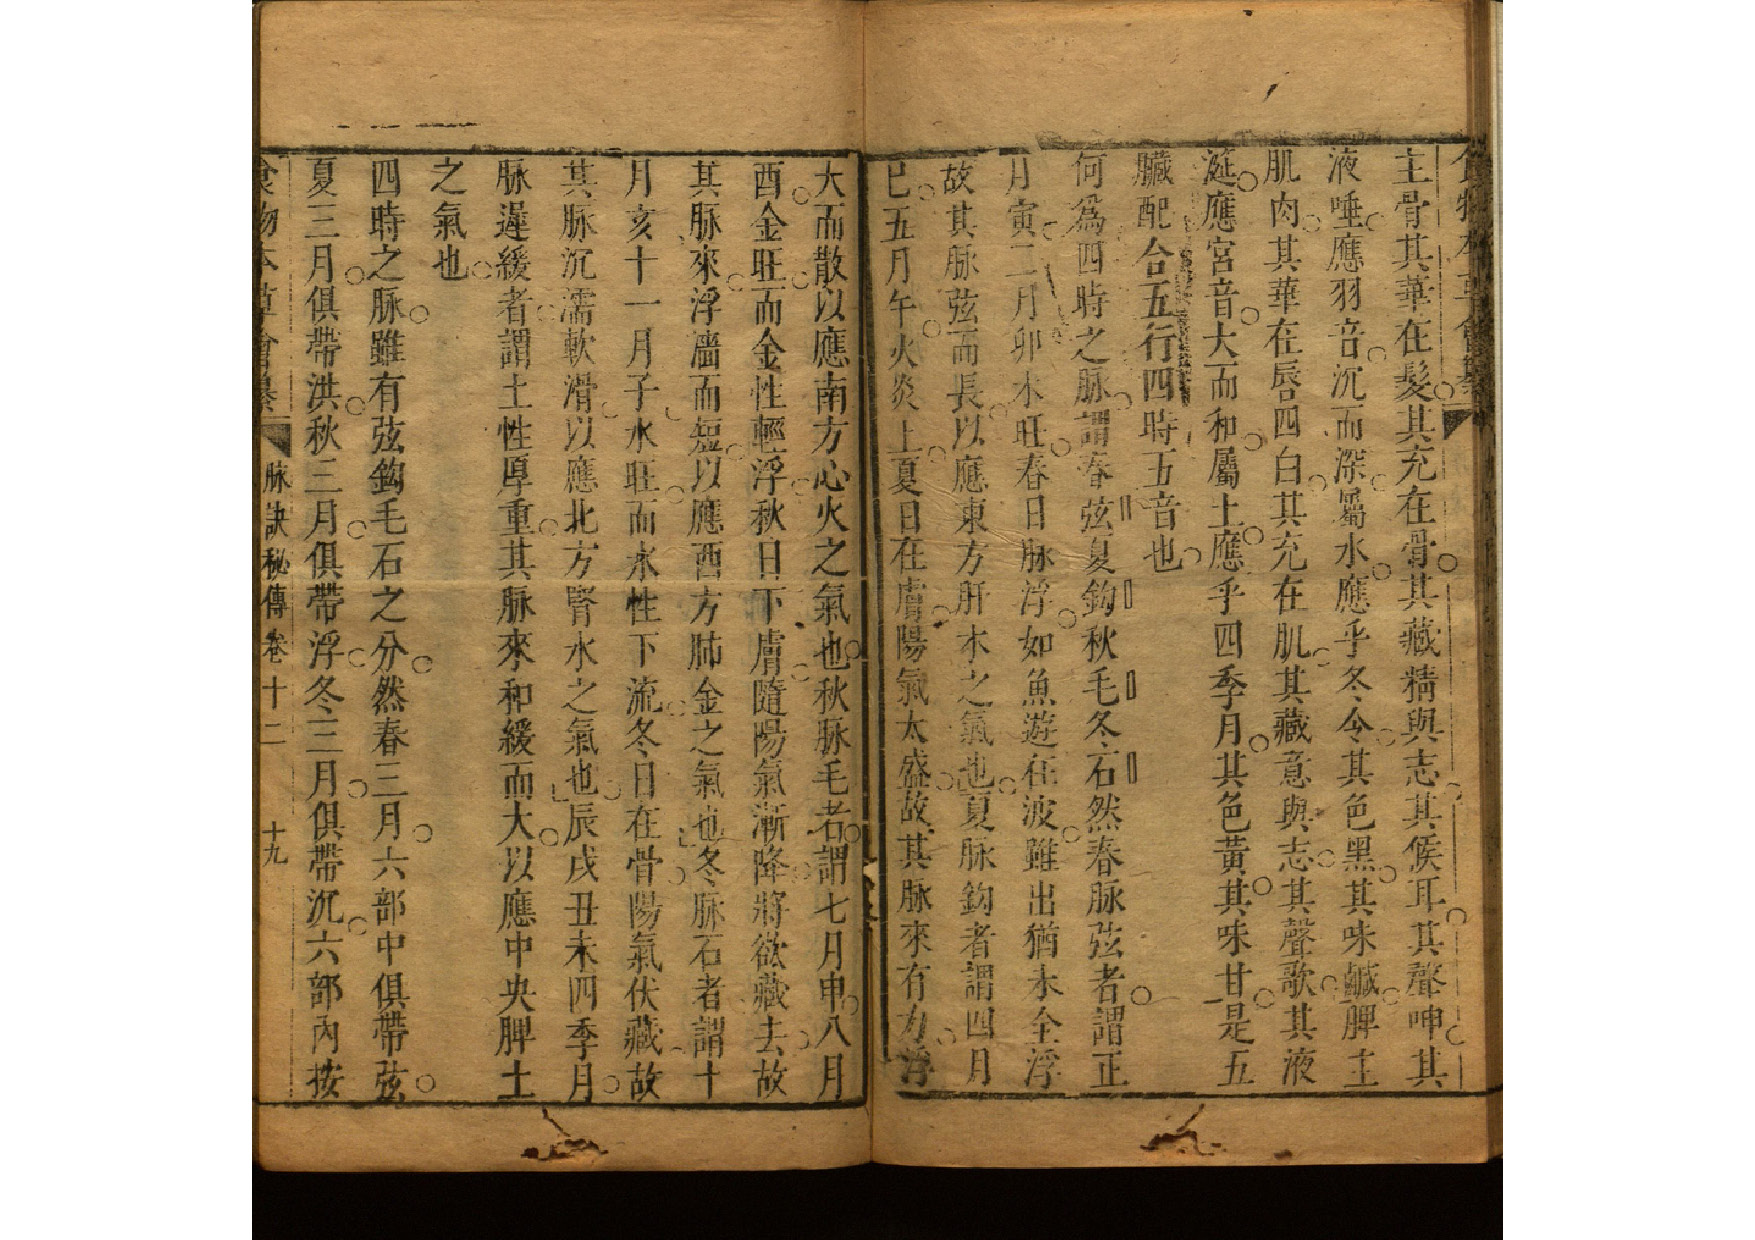 食物本草會纂
主骨其華在髮其充在骨其藏精與志其候耳其聲呻其
液唾應羽音沉而深屬水應乎冬令其色黑其味鹹脾主
肌肉其華在唇四白其充在肌其藏意與志其聲歌其液
涎應宮音大而和屬土應乎四季月其色黃其味甘是五
臟配合五行四時五音也
何為四時之脉謂春弦夏鈎秋毛冬石然春脉弦者謂正
月寅二月卯木旺春日脉浮如魚遊在波雖出猶未全浮
故其脉弦而長以應東方肝木之氣也夏脉鈎者謂四月
巳五月午火炎上夏日在膚陽氣太盛故其脉來有力浮
大而散以應南方心火之氣也秋脉毛者謂七月申八月
酉金旺而金性輕浮秋日下膚隨陽氣漸降將欲藏去故
其脉來浮濇而短以應西方肺金之氣也冬脉石者謂十
月亥十一月子水旺而水性下流冬日在骨陽氣伏藏故
其脉沉濡軟滑以應北方腎水之氣也辰戌丑未四季月
脉遲緩者謂土性厚重其脉來和緩而大以應中央脾土
之氣也
四時之脉雖有弦鈎毛石之分然春三月六部中俱帶弦
夏三月俱帶洪秋三月俱帶浮冬三月俱帶沉六部內按
食物本草會纂 脉訣秘傳卷十二 十九